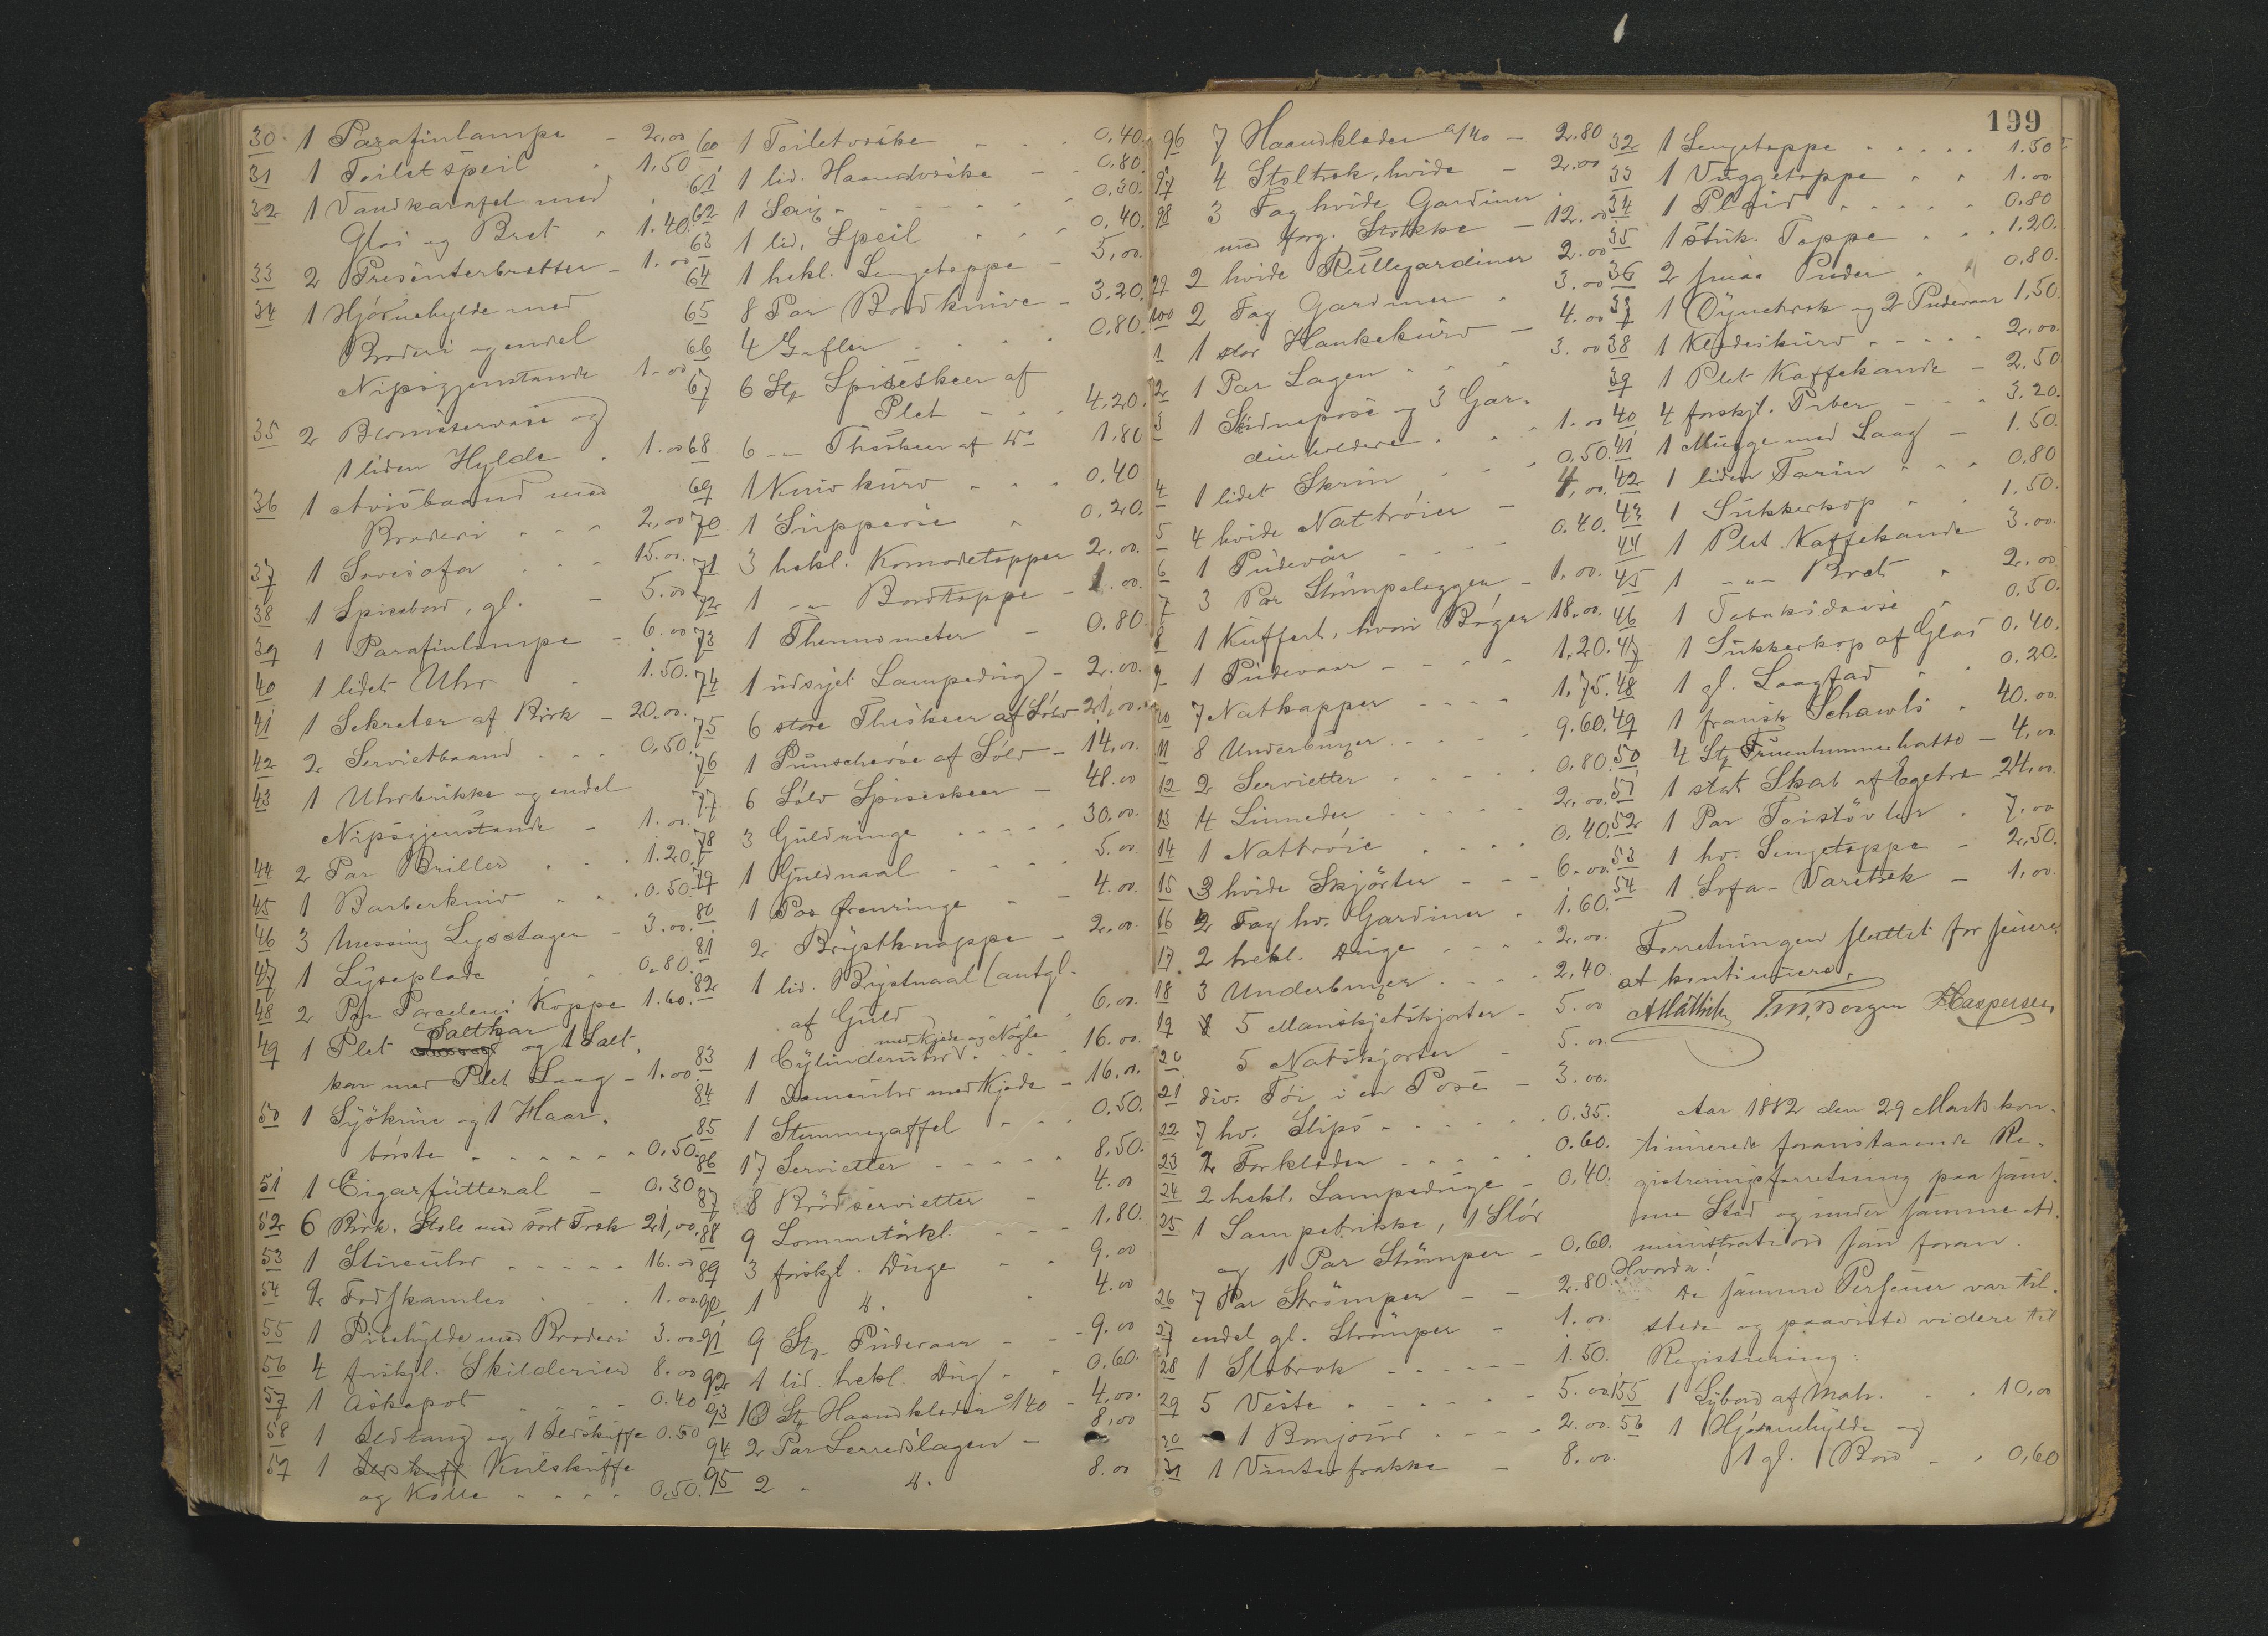 30 1 Parafinlampe - 2,00
31 1 Toiletspeil 1,50
32 1 Vandkarafel med
Glas og Bret 1.40
33 2 Presenterbretter - 1.00
34 1 Hjørnehylde med
Broderi og endel
Nipsgjenstande 1.00
35 2 Blomstervase og
1 liden Hylde 1.00
36 1 Avisbaand med
Broderi 2,00
37 1 Sovesofa 15.00
38 1 Spisebord, gl. - 5.00
39 1 Parafinlampe - 6.00
40 1 lidet Uhr 1.50.
41 1 Sekretær af Birk - 20.00
42 2 Servietbaand 0,50
43 1 Uhrbrikke og endel
Nipsgjenstande - 1.00
44 2 Par Briller 1.20
45 1 Barberkniv 0.50
46 3 Messing Lysestager - 3.00
47 1 Lyseplade 0.80
48 2 Par Porcelæns Koppe 1.60
49 1 Plet Saltkar og 1 Salt-
kar med Plet Laag - 1.00
50 1 Syskrin og 1 Haar-
børste 0,50
51 1 Cigarfutteral - 0,30
52 6 Birk. Stole med sort Træk 21,00
53 1 Stueuhr 16.00
54 2 Fodskamler 1.00
55 1 Pibehylde med Broderi 3.00
56 4 forskjl. Skilderier 8.00
57 1 Askepot 0.40
58 1 Ildtang og 1 Ildskuffe 0.50
59 1 Kulskuffe
og Kasse 0,50
60 1 Toiletvæske 0,40
61 1 lid. Haandvæske - 0.80
62 1 Sax 0,30
63 1 lid. Speil 0,40
64 1 hekl. Sengeteppe - 5,00
65 8 Par Bordknive - 3.20
66 4 Gafler 0.80
67 6 St. Spiseskeer af
Plet 4.20
68 6 -"- Theskeer af Do 1.80
69 1 Knivkurv 0.40
70 1 Suppeøse 0.20
71 3 hekl. Komodetepper 2.00
72 1 -"- Bordteppe - 1.00
73 1 Thermometer - 0.80
74 1 udsyet Lampedug - 2.00
75 6 store Theskeer af Sølv 21,00
76 1 Punscheøse af Sølv - 14,00
77 6 Sølv Spiseskeer - 48.00
78 3 Guldringe 30.00
79 1 Guldnaal 5.00
80 1 Par Ørenringe - 4.00
81 2 Brystknappe - 2.00
82 1 lid. Brystnaal (antgl.
af Guld) 6,00
med Kjede og Nøgle
83 1 Cylinderuhr 16.00
84 1 Dameuhr med Kjede - 16.00
85 1 Stemmegaffel 0.50
86 17 Servietter 8.50
87 8 Brødservietter - 4.00
88 9 Lommetørkl. 1,80
89 3 forskjl. Duge 9.00
90 1 d. 4.00
91 9 St. Pudevaar - 9.00
92 1 lid. hekl. Dug 0.60
93 10 St. Haandklæder a/40 - 4.00
94 2 Par Lerredslagen - 8,00
95 2 d. 8.00
199
96 7 Haandklæder a/40 - 2.80
97 4 Stoltræk, hvide - 2.00
98 3 Fag hvide Gardiner
med forg. Stokke - 12.00
99 2 hvide Rullegardiner 2.00
100 2 Fag Gardiner 3.00
1 1 stor Hankekurv - 4.00
2 1 Par Lagen 3.00
3 1 Skidnepose og 3 Gar-
dinholdere 1.00
4 1 lidet Skrin 0,50
5 4 hvide Nattrøier - 4,00
6 1 Pudevår 0.40
7 3 Par Strømpelegger - 1.00
8 1 Kuffert, hvori Bøger 18.00
9 1 Pudevaar 1,20
10 7 Natkapper 1,75
11 8 Underbuxer 9.60
12 2 Servietter 0.80
13 4 Linneder 2,00
14 1 Nattrøie 0,40
15 3 hvide Skjørter - 6.00
16 2 Fag hv. Gardiner 1.60
17 2 hekl. Duge 2,00
18 3 Underbuxer 2,40
19 5 Manskjetskjorter - 5.00
20 5 Natskjorter - 5.00
21 div. Tøi i en Pose - 3.00
22 7 hv. Slips 0.35
23 2 Forklæder 0.60
24 2 hekl. Lampeduge - 0,40
25 1 Lampebrikke, 1 Slør
og 1 Par Strømper - 0,60
26 7 Par Strømper - 2.80
27 endel gl. Strømper - 1.00
28 1 Slobrok 1.50
29 5 Veste 5.00
30 1 Bonjour 2.00
31 1 Vinterfrakke - 8.00
32 1 Sengeteppe 1.50
33 1 Vuggeteppe 1.00
34 1 Plaid 0.80
35 1 stuk. Teppe 1.20
36 2 smaa Puder 0.80
37 1 Dynetræk og 2 Pudevaar 1,50
38 1 Klædeskurv 2,00
39 1 Plet Kaffekande - 2,50
40 4 forskjl. Piber 3.20
41 1 Mugge med Laag - 1.50
42 1 liden Tarin 0,80
43 1 Sukkerkop 1.50
44 1 Plet Kaffekande 3.00
45 1 -"- Bret 2.00
46 1 Tobaksdaase 0.50
47 1 Sukkerkop af Glas 0.40
48 1 gl. Laagfad 0.20
49 1 fransk Schawls 40.00
50 4 St. Fruentimmerhatte - 4,00
51 1 stort Skab af Egetræ 24,00
52 1 Par Tøistøvler 7.00
53 1 hv. Sengeteppe - 2,50
54 1 Sofa-Varetræk - 1,00
Forretningen sluttet for senere
at kontinuere.
T.M. Borgen Kaspersen
Aar 1882 den 29 Marts kon-
tinuerede foranstaaende Re-
gistreringsforretning paa sam-
me Sted og under samme Ad-
ministration som foran.
Hvorda!
De samme Personer var til-
stede og paaviste videre til
Registrering:
155 1 Sybord af Mah. 10,00
56 1 Hjørnehylde og
1 gl. Bord 0,60